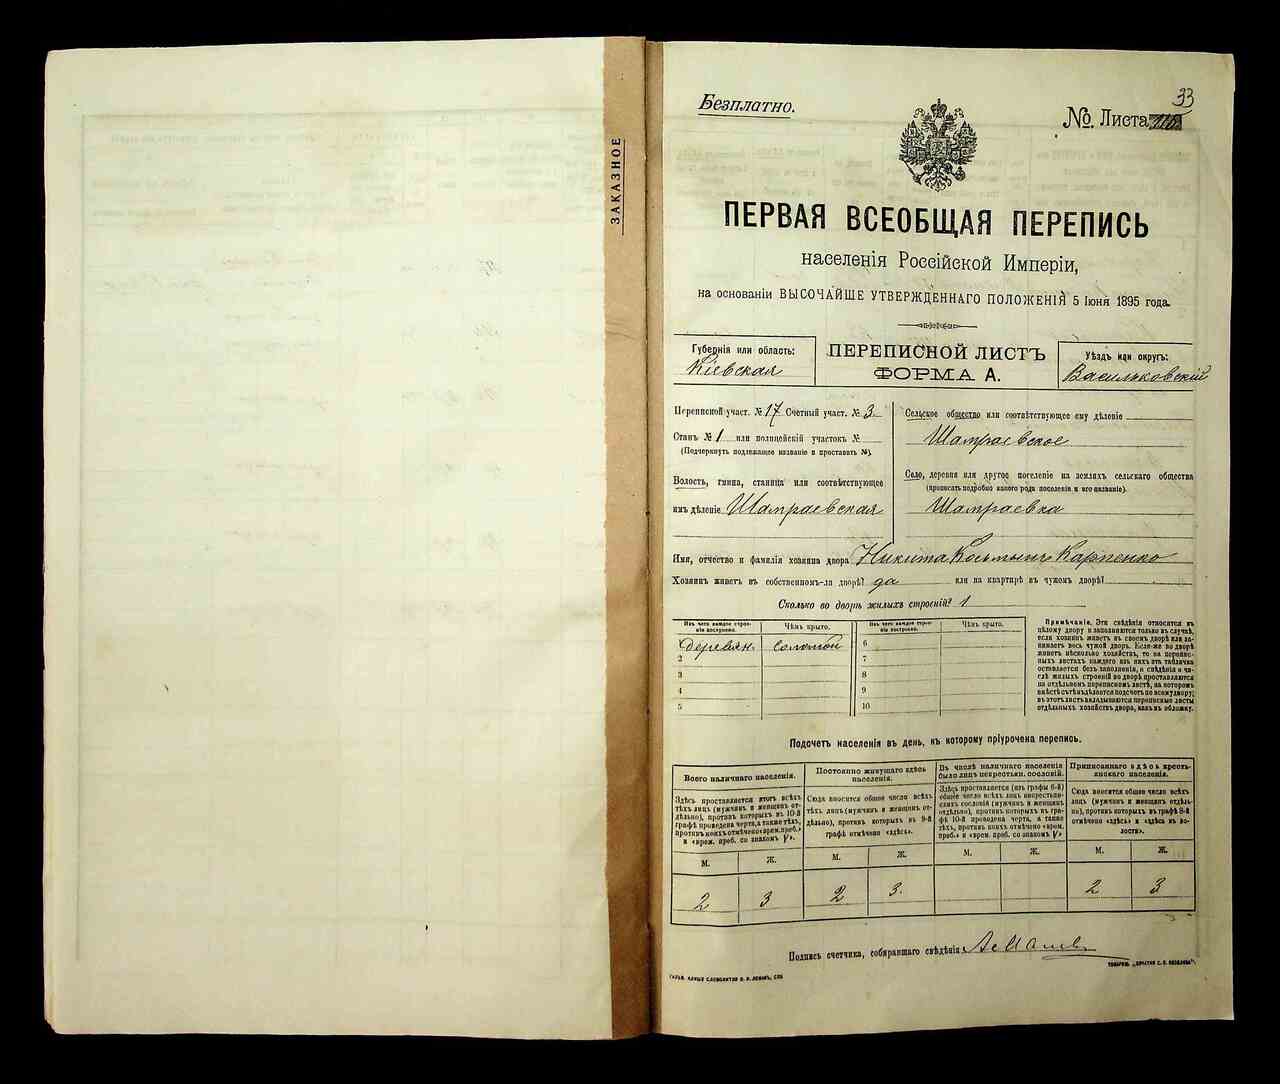 ЗАКАЗНОЕ
33
Безплатно.
№ Листа
ПЕРВАЯ ВСЕОБЩАЯ ПЕРЕПИСЬ
населенія Россійской Имперіи,
на основаніи ВЫСОЧАЙШЕ УТВЕРЖДЕННАГО ПОЛОЖЕНІЯ 5 Іюня 1895 года.
Губернія или область:
Кіевская
ПЕРЕПИСНОЙ ЛИСТЪ
ФОРМА А.
Уѣздъ или округъ:
Васильковскій
Переписной участ. № 17 Счетный участ. № 3.
Станъ № 1 или полицейскій участокъ №
(Подчеркнуть подлежащее названіе и проставить №).
Волость, гмина, станица или соотвѣтствующее
имъ дѣленіе Шамраевская
Сельское общество или соотвѣтствующее ему дѣленіе
Шамраевское
Село, деревня или другое поселеніе на земляхъ сельскаго общества
(прописать подробно какого рода поселеніе и его названіе).
Шамраевка
Имя, отчество и фамилія хозяина двора Никита Косьминъ Карпенко
Хозяинъ живетъ въ собственномъ-ли дворѣ? да или на квартирѣ въ чужомъ дворѣ?
Сколько во дворѣ жилыхъ строеній? 1
Изъ чего каждое строеніе построено. Чѣмъ крыто. Изъ чего каждое строеніе построено. Чѣмъ крыто.
деревян. соломой 6
2 7
3 8
4 9
5 10
Примѣчаніе. Эти свѣдѣнія относятся къ
цѣлому двору и заполняются только въ случаѣ,
если хозяинъ живетъ въ своемъ дворѣ или занимаетъ
весь чужой дворъ. Если-же во дворѣ
живетъ нѣсколько хозяйствъ, то на переписныхъ
листахъ каждаго изъ нихъ эта табличка
оставляется безъ заполненія, а свѣдѣнія о числѣ
жилыхъ строеній во дворѣ проставляются
на отдѣльномъ переписномъ листѣ, на которомъ
вмѣстѣ съ тѣмъ дѣлается подсчетъ по всему двору;
въ этотъ листъ вкладываются переписные листы
отдѣльныхъ хозяйствъ двора, какъ въ обложку.
Подсчетъ населенія въ день, къ которому пріурочена перепись.
Всего наличнаго населенія.
Здѣсь проставляется итогъ всѣхъ
тѣхъ лицъ (мужчинъ и женщинъ отдѣльно),
противъ которыхъ въ 10-й
графѣ проведена черта, а также тѣхъ,
противъ коихъ отмѣчено «врем. преб.»
и «врем. преб. со знакомъ V».
Постоянно живущаго здѣсь
населенія.
Сюда вносится общее число всѣхъ
тѣхъ лицъ (мужчинъ и женщинъ отдѣльно),
противъ которыхъ въ 9-й
графѣ отмѣчено «здѣсь».
Въ числѣ наличнаго населенія
было лицъ некрестьян. сословій.
Здѣсь проставляется (изъ графы 6-й)
общее число всѣхъ лицъ некрестьянскихъ
сословій (мужчинъ и женщинъ
отдѣльно), противъ которыхъ въ графѣ
10-й проведена черта, а также
тѣхъ, противъ коихъ отмѣчено «врем.
преб.» и «врем. преб. со знакомъ V»
Приписаннаго здѣсь крестьянскаго
населенія.
Сюда вносится общее число всѣхъ
лицъ (мужчинъ и женщинъ отдѣльно),
противъ которыхъ въ графѣ 8-й
отмѣчено «здѣсь» и «здѣсь въ волости».
М. Ж. М. Ж. М. Ж. М. Ж.
2 3 2 3. 2 3
Подпись счетчика, собиравшаго свѣдѣнія